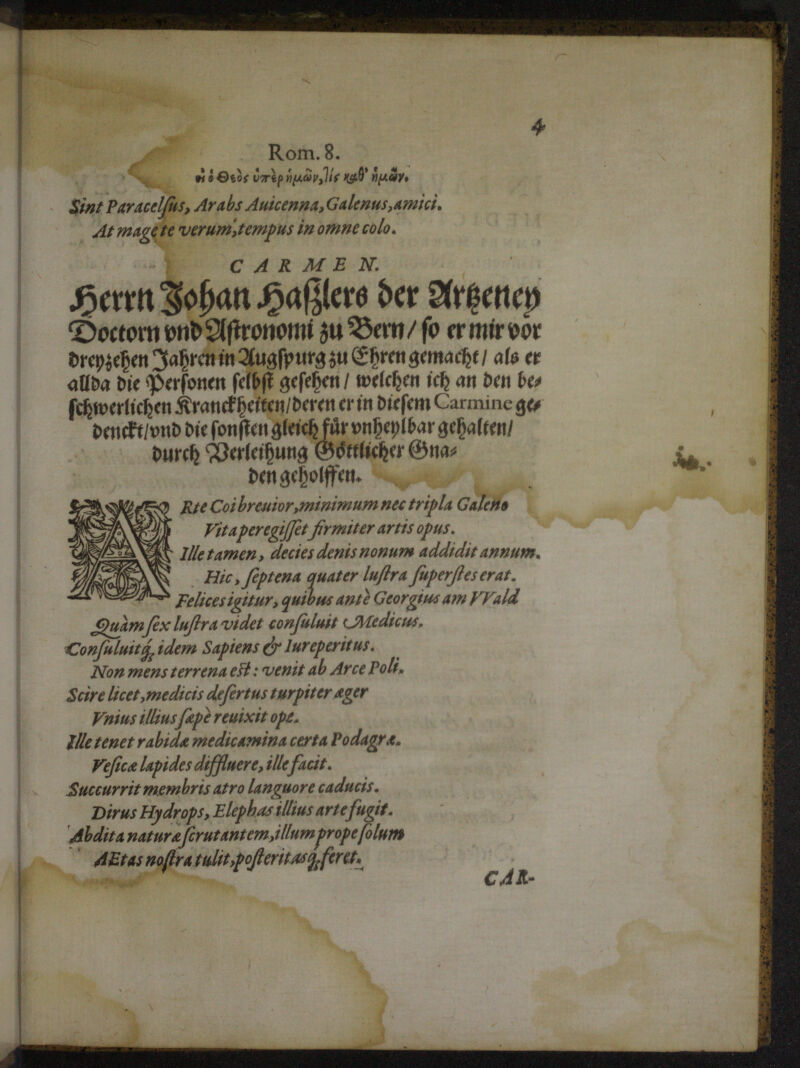 4
Rom. 8.
εἰ ὁ Θεὸς ὑπὲρ ἡμῶν, τίς καθ' ἡμῶν.
Sint Paracelſus, Arabs Auicenna, Galenus, amici.
At mage te verum, tempus in omne colo.
CARMEN.
Herrn Johan Haßlers der Artzeney
Doctorn vnd Aſtronomi zu Bern / ſo er mir vor
dreyzehen Jahren in Augſpurg zu Ehren gemacht / als er
allda die Perſonen ſelbſt geſehen / welchen ich an den be⸗
ſchwerlichen Kranckheiten / deren er in dieſem Carmine ge⸗
denckt / vnd die ſonſten gleich für vnheylbar gehalten /
durch Verleihung Göttlicher Gna⸗
den geholffen.
ARte Coi breuior, minimum nec tripla Galeno
Vita peregiſſet firmiter artis opus.
Ille tamen, decies denis nonum addidit annum.
Hic, ſeptena quater luſtra ſuperſtes erat.
Felices igitur, quibus antè Georgius am VVald
Quàm ſex luſtra videt conſuluit Medicus.
Conſuluitq; idem Sapiens & Iureperitus.
Non mens terrena eſt: venit ab Arce Poli.
Scire licet, medicis deſertus turpiter æger
Vnius illius ſæpè reuixit ope.
Ille tenet rabidæ medicamina certa Podagræ.
Veſicæ lapides diffluere, ille facit.
Succurrit membris atro languore caducis.
Dirus Hydrops, Elephas illius arte fugit.
Abdita naturæ ſcrutantem, illum prope ſolum
AEtas noſtra tulit, poſteritasq; feret.
CAR-